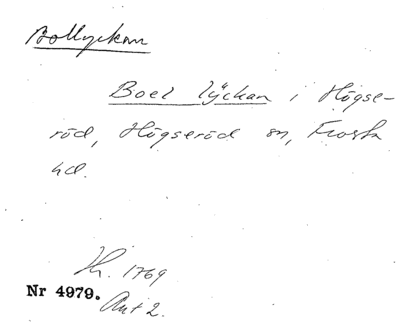 Bollyckan
Boel lÿckan i Högse-
röd, Högseröd sn, Frosta
hd.
Kh. 1769
Nr 4979.
Akt 2.